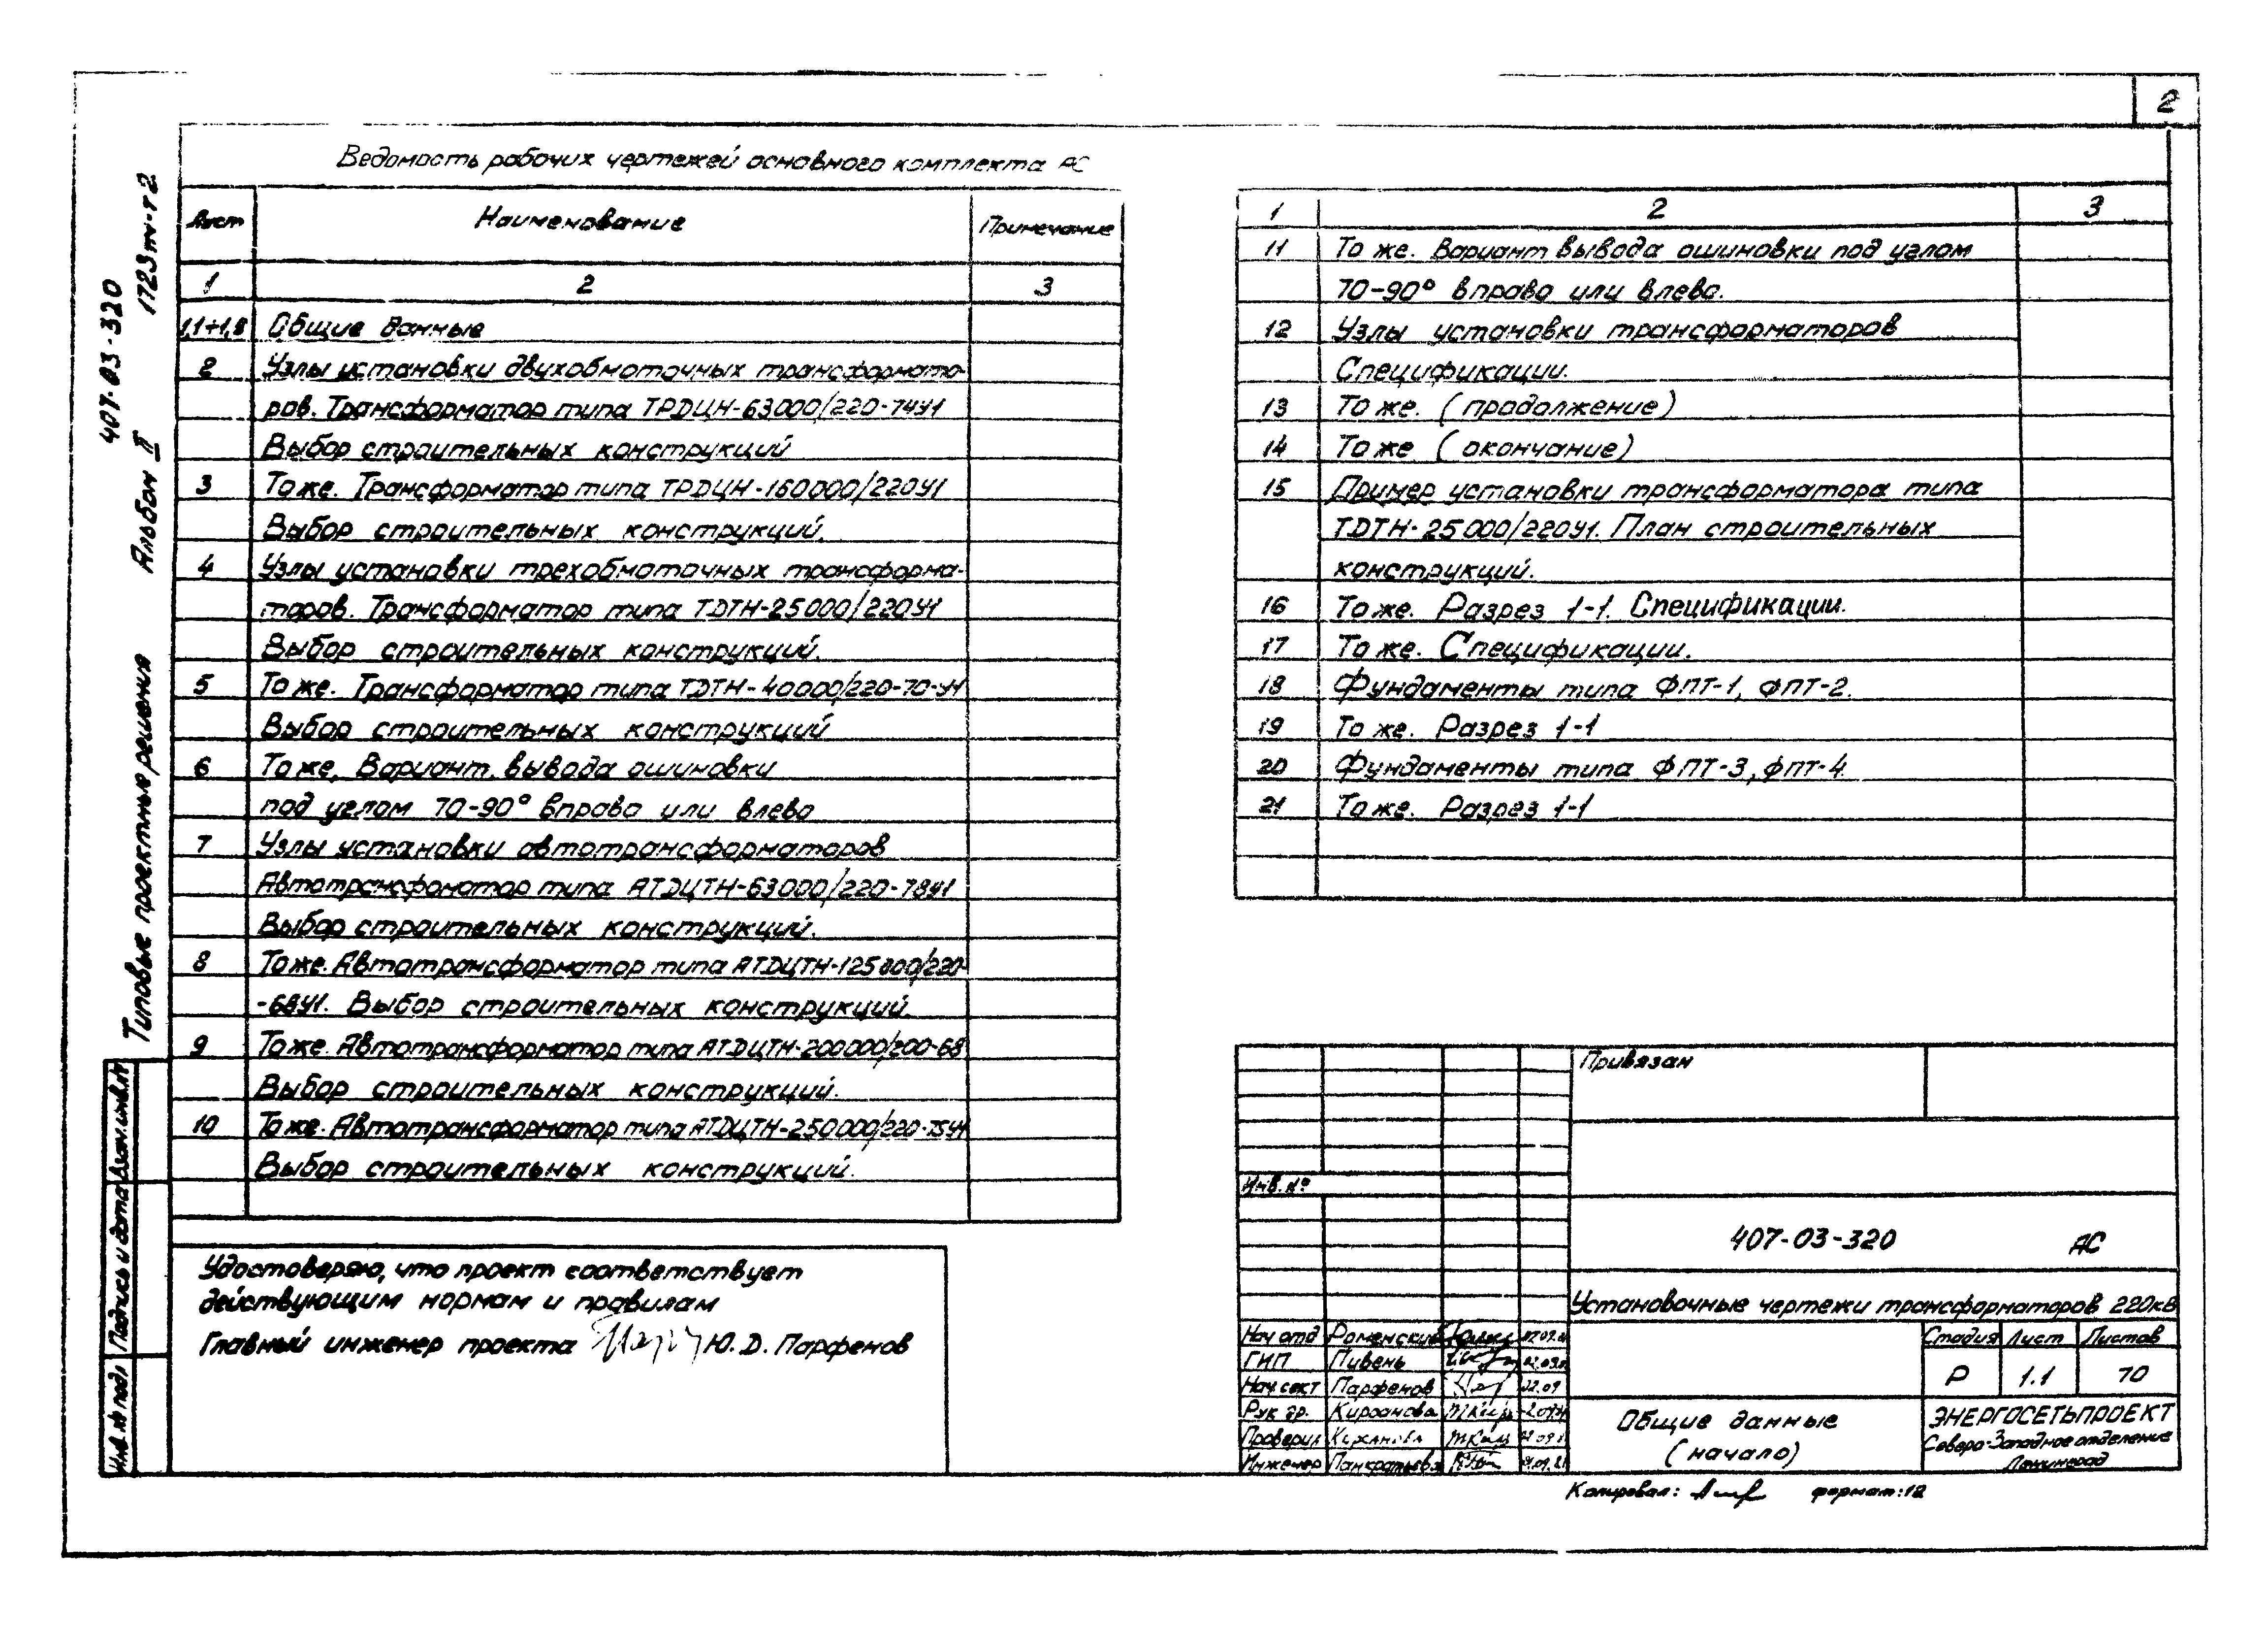 2
Ведомость рабочих чертежей основного комплекта АС
Лист Наименование Примечание
1 2 3
1,1÷1,8 Общие данные
2 Узлы установки двухобмоточных трансформато-
ров. Трансформатор типа ТРДЦН-63000/220-74У1
Выбор строительных конструкций
3 То же. Трансформатор типа ТРДЦН-160000/220У1
Выбор строительных конструкций.
4 Узлы установки трехобмоточных трансформа-
торов. Трансформатор типа ТДТН-25000/220У1
Выбор строительных конструкций.
5 То же. Трансформатор типа ТДТН-40000/220-70-У1
Выбор строительных конструкций
6 То же, Вариант вывода ошиновки
под углом 70-90° вправо или влево
7 Узлы установки автотрансформаторов
Автотрансфоматор типа АТДЦТН-63000/220-78У1
Выбор строительных конструкций.
8 То же. Автотрансформатор типа АТДЦТН-125000/220-
-68У1. Выбор строительных конструкций.
9 То же. Автотрансформатор типа АТДЦТН-200000/200-68
Выбор строительных конструкций.
10 То же. Автотрансформатор типа АТДЦТН-250000/220-75У1
Выбор строительных конструкций.
1 2 3
11 То же. Вариант вывода ошиновки под углом
70-90° вправо или влево.
12 Узлы установки трансформаторов
Спецификации.
13 То же. (продолжение)
14 То же (окончание)
15 Пример установки трансформатора типа
ТДТН-25000/220У1. План строительных
конструкций.
16 То же. Разрез 1-1. Спецификации.
17 То же. Спецификации.
18 Фундаменты типа ФПТ-1, ФПТ-2.
19 То же. Разрез 1-1
20 Фундаменты типа ФПТ-3, ФПТ-4
21 То же. Разрез 1-1
Удостоверяю, что проект соответствует
действующим нормам и правилам
Главный инженер проекта Ю. Д. Парфенов
Привязан
Инв. №
407-03-320 АС
Установочные чертежи трансформаторов 220кВ
Нач отд Роменский
ГИП Пивень
Нач. сект Парфенов 22.09
Рук гр. Кирсанова
Проверил Кирсанова
Инженер Панкратьева
Стадия Лист Листов
Р 1.1 70
Общие данные
(начало)
ЭНЕРГОСЕТЬПРОЕКТ
Северо-Западное отделение
Ленинград
Копировал: формат: 12
Типовые проектные решения Альбом II
407-03-320 1723тм-т2
Инв. № подл Подпись и дата Взам. инв. №